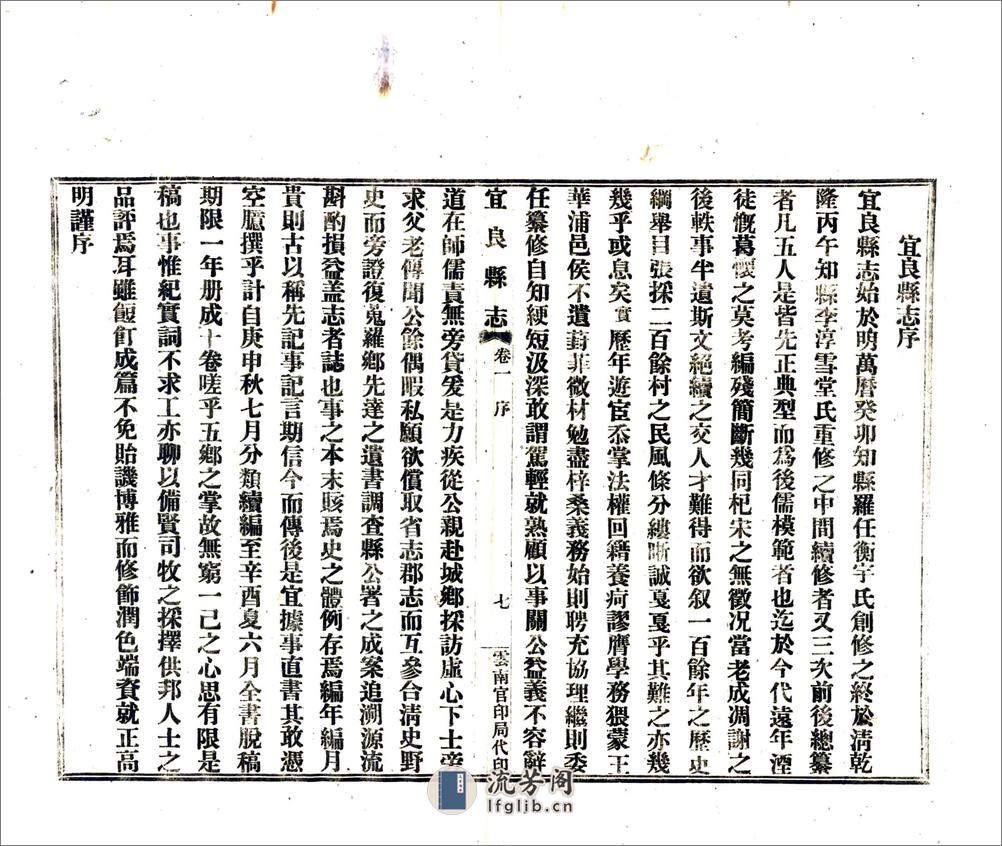 宜良縣志序
宜良縣志始於明萬曆癸卯知縣羅任衡宇氏創修之終於清乾
隆丙午知縣李淳雪堂氏重修之中間續修者又三次前後總纂
者凡五人是皆先正典型而爲後儒模範者也迄於今代遠年湮
徒慨葛懷之莫考編殘簡斷幾同杞宋之無徵况當老成凋謝之
後軼事半遺斯文絕續之交人才難得而欲叙一百餘年之歷史
綱舉目張採二百餘村之民風條分縷晰誠戛戛乎其難之亦幾
幾乎或息矣實歷年遊宦忝掌法權回籍養疴謬膺學務猥蒙王
華浦邑侯不遺葑菲微材勉盡梓桑義務始則聘充協理繼則委
任纂修自知綆短汲深敢謂駕輕就熟顧以事關公益義不容辭
宜良縣志 卷一 序 七 雲南官印局代印
道在師儒責無旁貸爰是力疾從公親赴城鄉採訪虛心下士帝
求父老傳聞公餘偶暇私願欲償取省志郡志而互參合清史野
史而旁證復蒐羅鄉先達之遺書調查縣公署之成案追溯源流
斟酌損益盖志者誌也事之本末賅焉史之體例存焉編年編月
貴則古以稱先記事記言期信今而傳後是宜據事直書其敢憑
空臆撰乎計自庚申秋七月分類續編至辛酉夏六月全書脫稿
期限一年册成十卷嗟乎五鄉之掌故無窮一己之心思有限是
稿也事惟紀實詞不求工亦聊以備賢司牧之採擇供邦人士之
品評焉耳雖餖飣成篇不免貽譏博雅而修飾潤色端賚就正高
明謹序
流芳阁
lfglib.cn